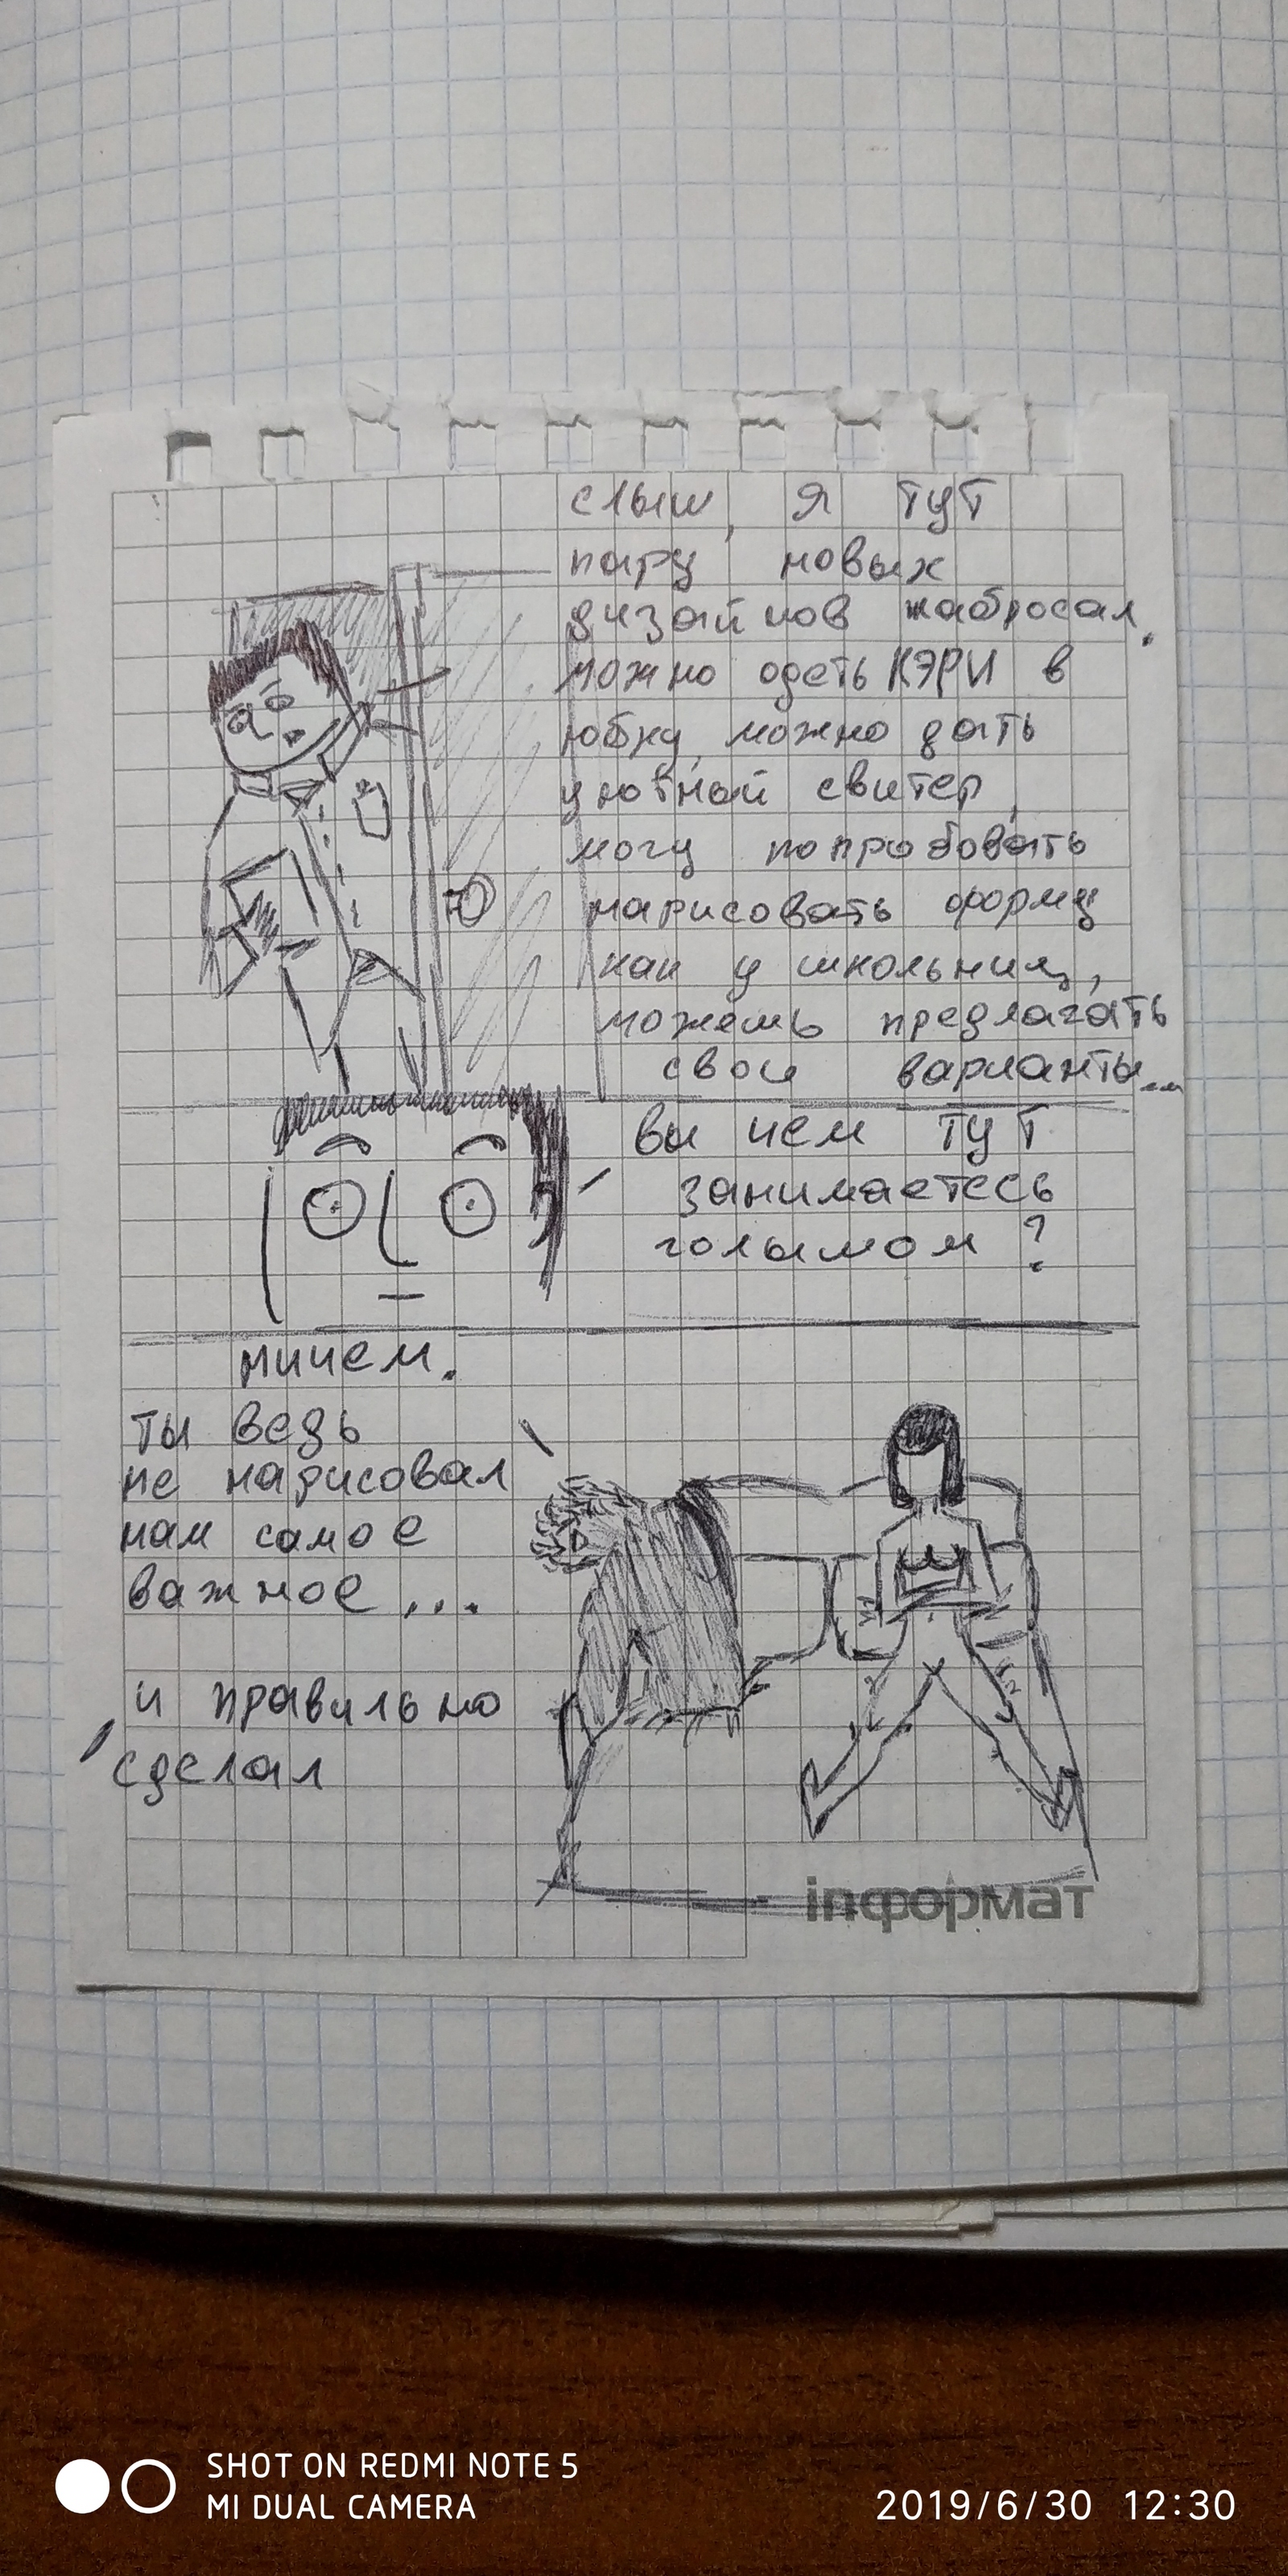 слыш, я тут
пару новых
дизайнов набросал.
можно одеть КЭРИ в
юбку, можно дать
уютный свитер,
могу попробовать
нарисовать форму
как у школьниц,
можешь предлагать
свои варианты...
вы чем тут
занимаетесь
голымом?
ничем.
ты ведь
не нарисовал
нам самое
важное...
и правильно
сделал
inформат
SHOT ON REDMI NOTE 5
MI DUAL CAMERA
2019/6/30 12:30